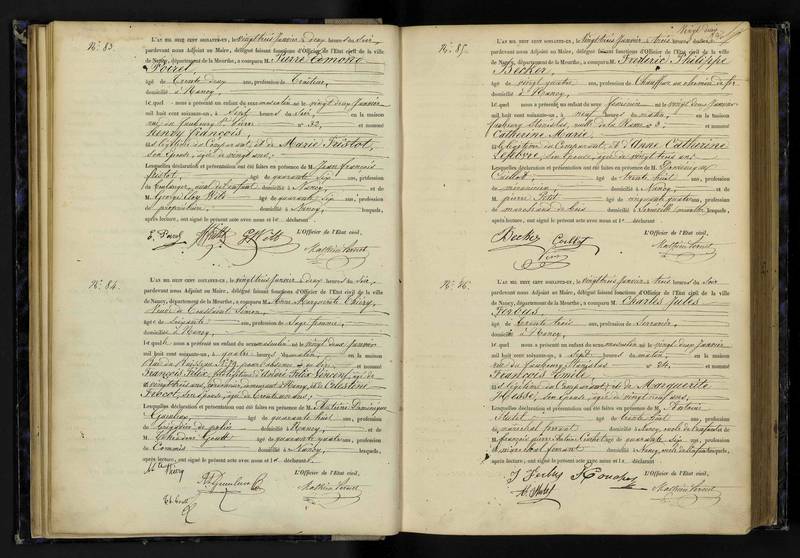 No. 83.
L'AN MIL HUIT CENT SOIXANTE-UN, le vingt trois Janvier deux heures du soir
pardevant nous Adjoint au Maire, délégué faisant fonctions d'Officier de l'Etat civil de la ville
de Nancy, département de la Meurthe, a comparu M. Pierre Edmond
Poirel,
âgé de trente deux ans, profession de Traiteur,
domicilié à Nancy,
lequel nous a présenté un enfant du sexe masculin né le vingt deux Janvier
mil huit cent soixante-un, à sept heures du soir, en la maison
rue du faubourg St Pierre n° 32, et nommé
Henry François,
fils légitime du Comparant, et de Marie Fristot,
son épouse, âgée de vingt ans;
Lesquelles déclaration et présentation ont été faites en présence de M. Jean François
Fristot, âgé de quarante six ans, profession
de boulanger, domicilié à Nancy, et de
M. George âgé de quarante six ans, profession
de propriétaire, domicilié à Nancy, lesquels,
après lecture, ont signé le présent acte avec nous et le déclarant.
L'Officier de l'Etat civil,
No. 84.
L'AN MIL HUIT CENT SOIXANTE-UN, le vingt trois Janvier deux heures du soir,
pardevant nous Adjoint au Maire, délégué faisant fonctions d'Officier de l'Etat civil de la ville
de Nancy, département de la Meurthe, a comparu M. Anne Marguerite Thiéry,
Veuve de Toussaint Simon,
âgée de soixante ans, profession de Sage femme,
domiciliée à Nancy,
laquelle nous a présenté un enfant du sexe masculin né le vingt deux Janvier
mil huit cent soixante-un, à quatre heures du matin, en la maison
et nommé
François Félix, fils légitime d'Isidore Félix Vincent, âgé de
vingt trois ans, demeurant à Nancy, et de Célestine
son épouse, âgée de trente ans;
Lesquelles déclaration et présentation ont été faites en présence de M. Antoine Dominique
âgé de quarante huit ans, profession
de Brigadier de police domicilié à Nancy, et de
M. âgé de quarante quatre ans, profession
de Commis domicilié à Nancy, lesquels,
après lecture, ont signé le présent acte avec nous et la déclarante.
L'Officier de l'Etat civil,
Vingt deux
No. 85.
L'AN MIL HUIT CENT SOIXANTE-UN, le vingt trois Janvier trois heures du soir
pardevant nous Adjoint au Maire, délégué faisant fonctions d'Officier de l'Etat civil de la ville
de Nancy, département de la Meurthe, a comparu M. Frédéric Philippe
Becker,
âgé de vingt quatre ans, profession de Chauffeur au chemin de fer
domicilié à Nancy,
lequel nous a présenté un enfant du sexe féminin né le vingt deux Janvier
mil huit cent soixante-un, à neuf heures du matin, en la maison
faubourg Stanislas, n° 3, et nommé
Catherine Marie,
fille légitime du Comparant, et d'Anne Catherine
Lefebvre, son épouse, âgée de vingt trois ans
Lesquelles déclaration et présentation ont été faites en présence de M. Dominique
âgé de trente huit ans, profession
de mécanicien, domicilié à Nancy, et de
M. pierre Petit âgé de cinquante quatre ans, profession
de marchand de bois domicilié à lesquels,
après lecture, ont signé le présent acte avec nous et le déclarant
L'Officier de l'Etat civil,
Becker
No. 86.
L'AN MIL HUIT CENT SOIXANTE-UN, le vingt trois Janvier trois heures du soir
pardevant nous Adjoint au Maire, délégué faisant fonctions d'Officier de l'Etat civil de la ville
de Nancy, département de la Meurthe, a comparu M. Charles Jules
Ferbus
âgé de trente trois ans, profession de Serrurier,
domicilié à Nancy,
lequel nous a présenté un enfant du sexe masculin né le vingt deux Janvier
mil huit cent soixante-un, à sept heures du matin, en la maison
rue du faubourg Stanislas n° 24, et nommé
François Emile,
fils légitime du Comparant, et de Marguerite
Hesse, son épouse, âgée de vingt neuf ans,
Lesquelles déclaration et présentation ont été faites en présence de M. Antoine
âgé de trente huit ans, profession
de maréchal ferrant domicilié à Nancy, oncle de l'enfant et de
M. françois pierre Antoine âgé de quarante six ans, profession
de maréchal ferrant domicilié à Nancy, oncle de l'enfant lesquels,
après lecture, ont signé le présent acte avec nous et le déclarant
L'Officier de l'Etat civil,
J Ferbus